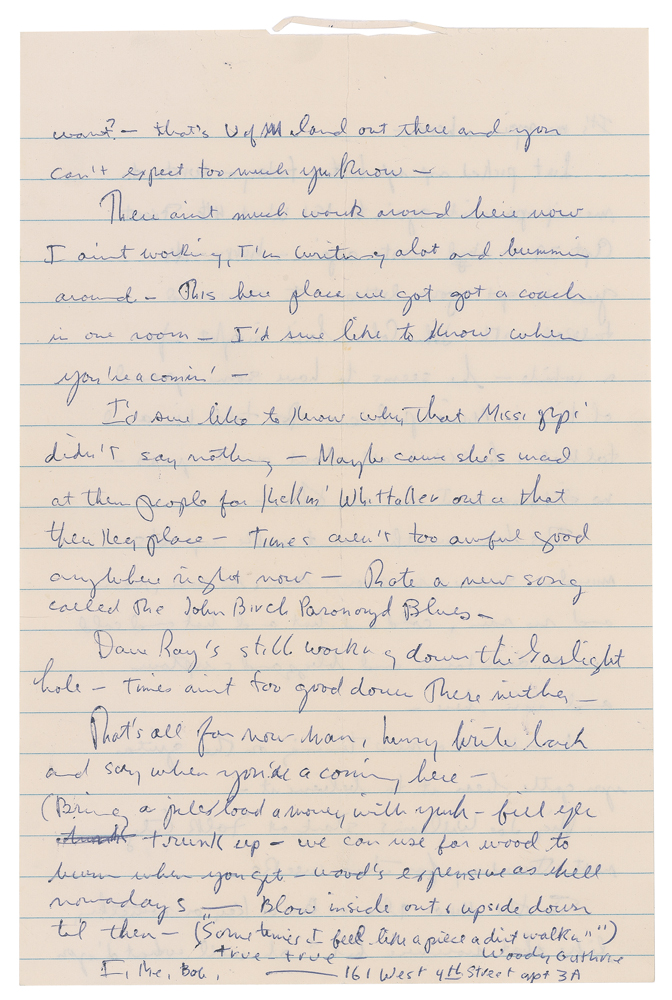 want? — that's U of M land out there and you
can't expect too much yuh know —
There aint much work around here now
I aint working, I'm writing alot and bummin
around — This here place we got got a couch
in one room — I'd sure like to know when
you're a comin' —
I'd sure like to know why that Missi
didn't say nothing — Maybe cause she's mad
at them people for kickin' Whittaker out a that
there place — Times aren't too awful good
anywhere right now — Rote a new song
called The John Birch Paronoyd Blues —
Dave Ray's still working down the Gaslight
hole — times aint too good down there neither —
That's all for now man, hurry write back
and say when you're a coming here —
(Bring a load a money with yuh — fill
trunk up — we can use for wood to
burn when you get — wood's expensive as hell
nowadays — Blow inside out & upside down
til then — ("Sometimes I feel like a piece a dirt walkin"")
true — true — Woody Guthrie
I, Me, Bob, — 161 West 4th Street apt 3A